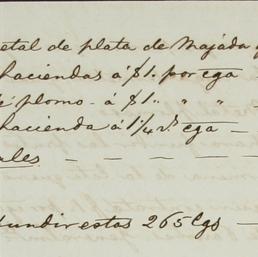 metal de plata de Majada
haciendas á $1. por cga —
de plomo - á $1 " " " —
hacienda á 1 1/4 rs cga —
ales — — — — —
fundir estas 265 Cgs —